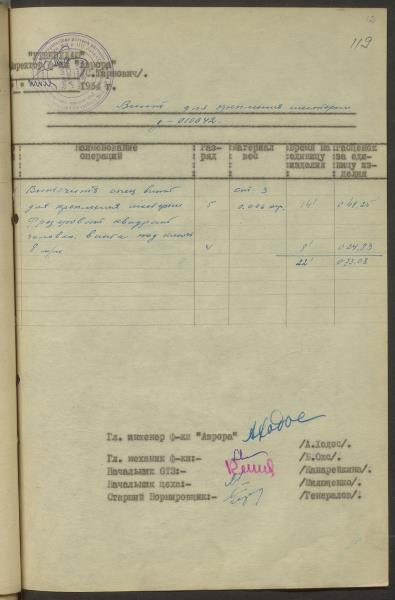 119
"УТВЕРЖДАЮ"
Директор ф-ки "Аврора"
/С.Таркович/.
1954 г.
Винт для крепления шестерни
д-010042.
Наименование операций
Раз-ряд
Материал вес
Время на единицу изделия
Расценок за еди-ницу из-делия
Выточить спец винт ст. 3
для крепления шестерни 5 0.006 кг. 14' 0.48,25
Фрезеровать квадрат
головки винта под ключ
8 м/м 4 8' 0.24,83
22' 0.73.08
Гл. инженер ф-ки "Аврора" /А.Ходос/.
Гл. механик ф-ки:- /Б.Окс/.
Начальник ОТЗ:- /Канарейкина/.
Начальник цеха:-
Старший Нормировщик:- /Генералов/.